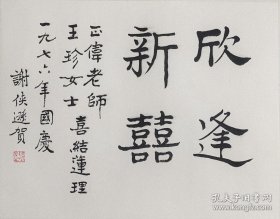 欣逢
新囍
正偉老師
王珍女士
喜結蓮理
一九七六年國慶
謝侠遜賀
孔夫子旧书网